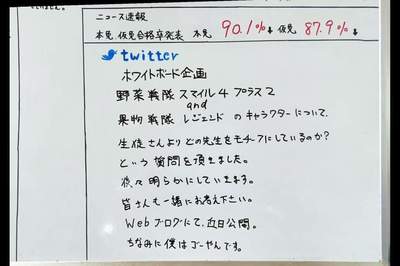 ニュース速報
本免、仮免合格率発表 本免 90.1%↓ 仮免 87.9%↓
twitter
ホワイトボード企画
野菜戦隊 スマイル4 プラス2
and
果物戦隊 レジェンド のキャラクターについて、
生徒さんよりどの先生をモチーフにしているのか?
という質問を頂きました。
徐々明らかにしていきます。
皆さんも一緒にお考え下さい。
Webブログにて、近日公開。
ちなみに僕はゴーやんです。